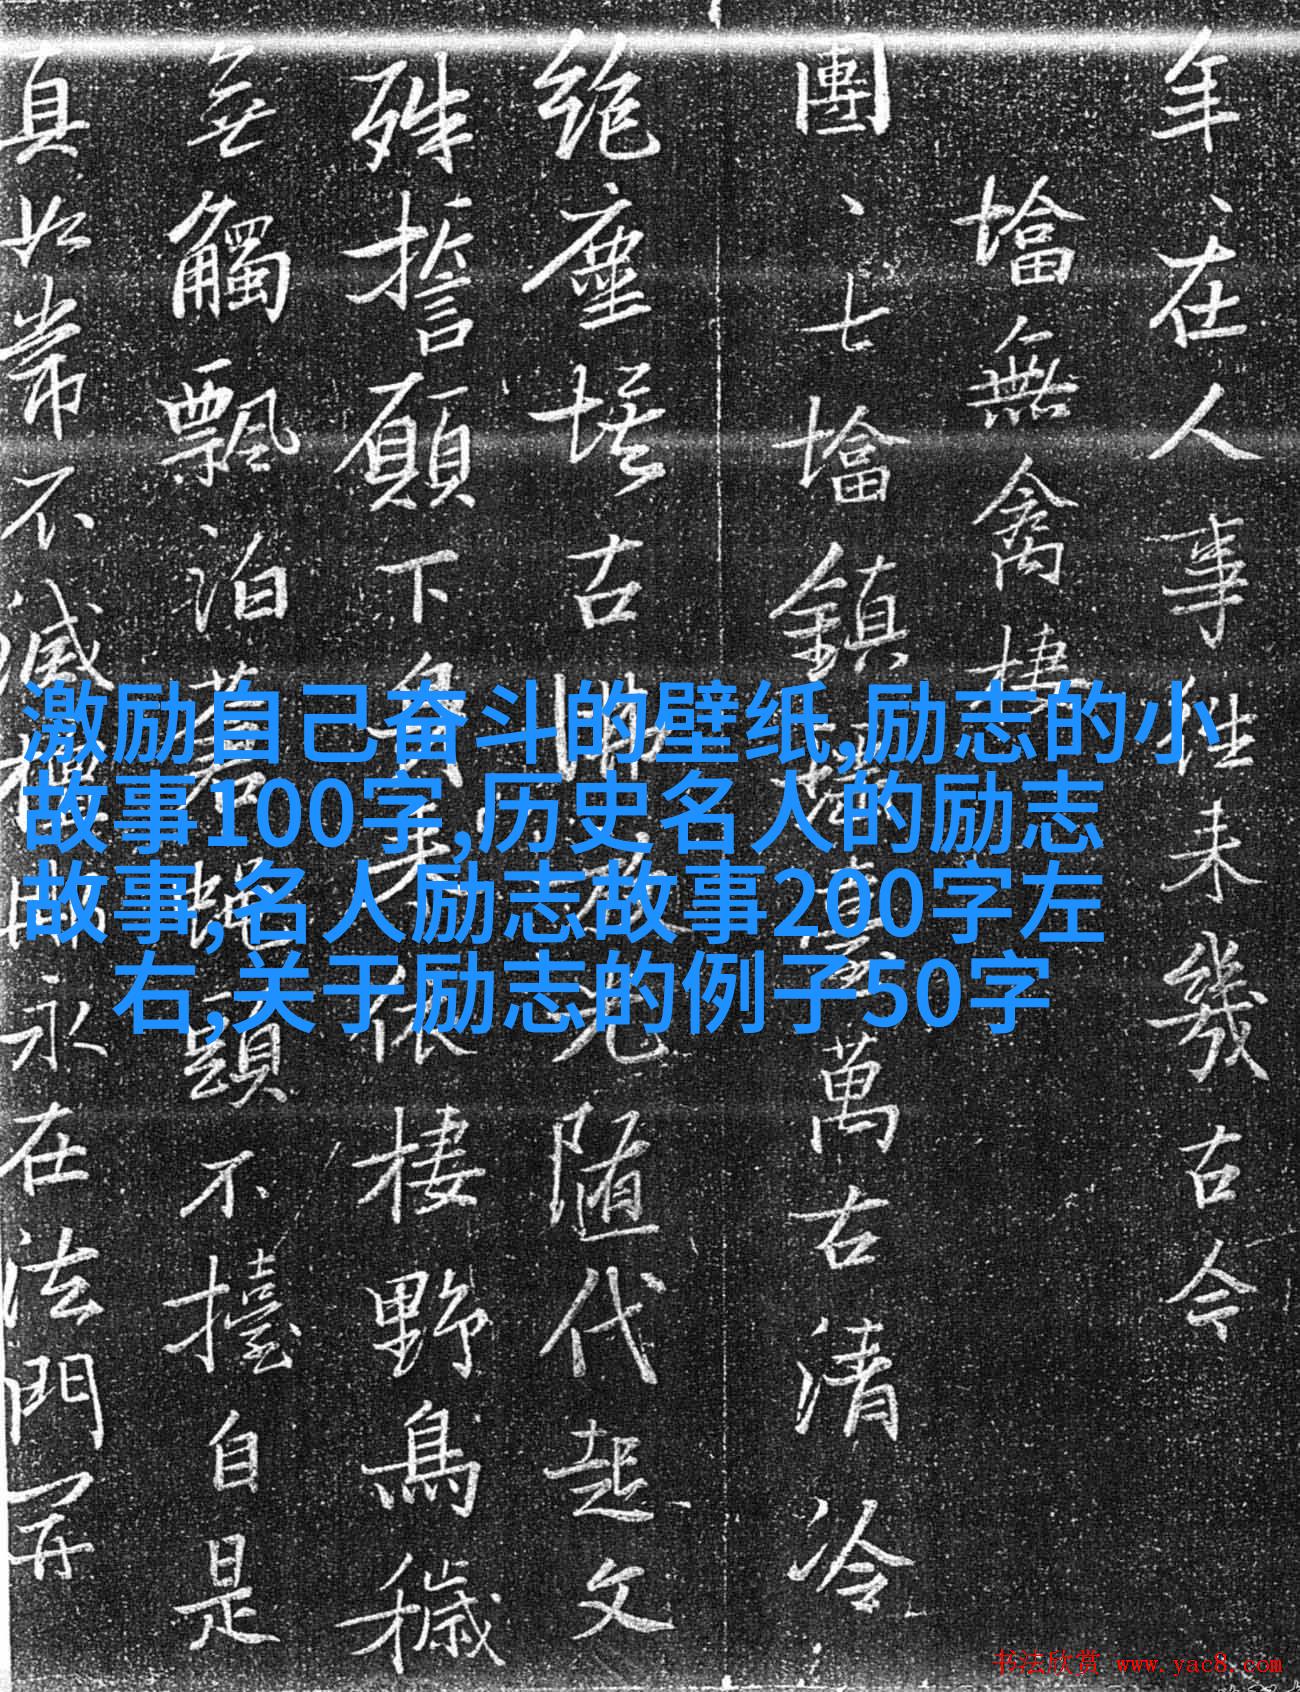 年、在人事性未幾古今
墖無禽棲
團、七墖鎮
萬古清冷
绝塵埃古
随代起文
殊誓願下
棲野鳥穢
無觸飄泊若
題不擡自是
真如常不滅
永在法門开
激励自己奋斗的壁纸,励志的小
故事100字,历史名人的励志
故事,名人励志故事200字左
右,关于励志的例子50字
书法欣赏 www.yac8.com